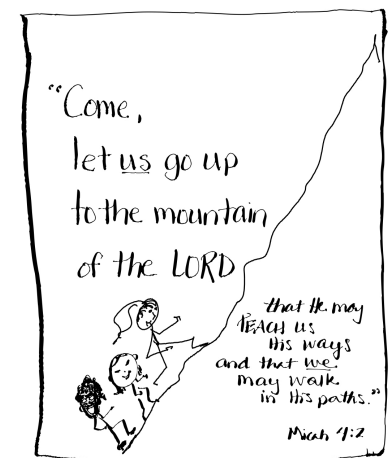 "Come,
let us go up
to the mountain
of the LORD
that He may
TEACH us
His ways
and that we
may walk
in His paths."
Micah 4:2